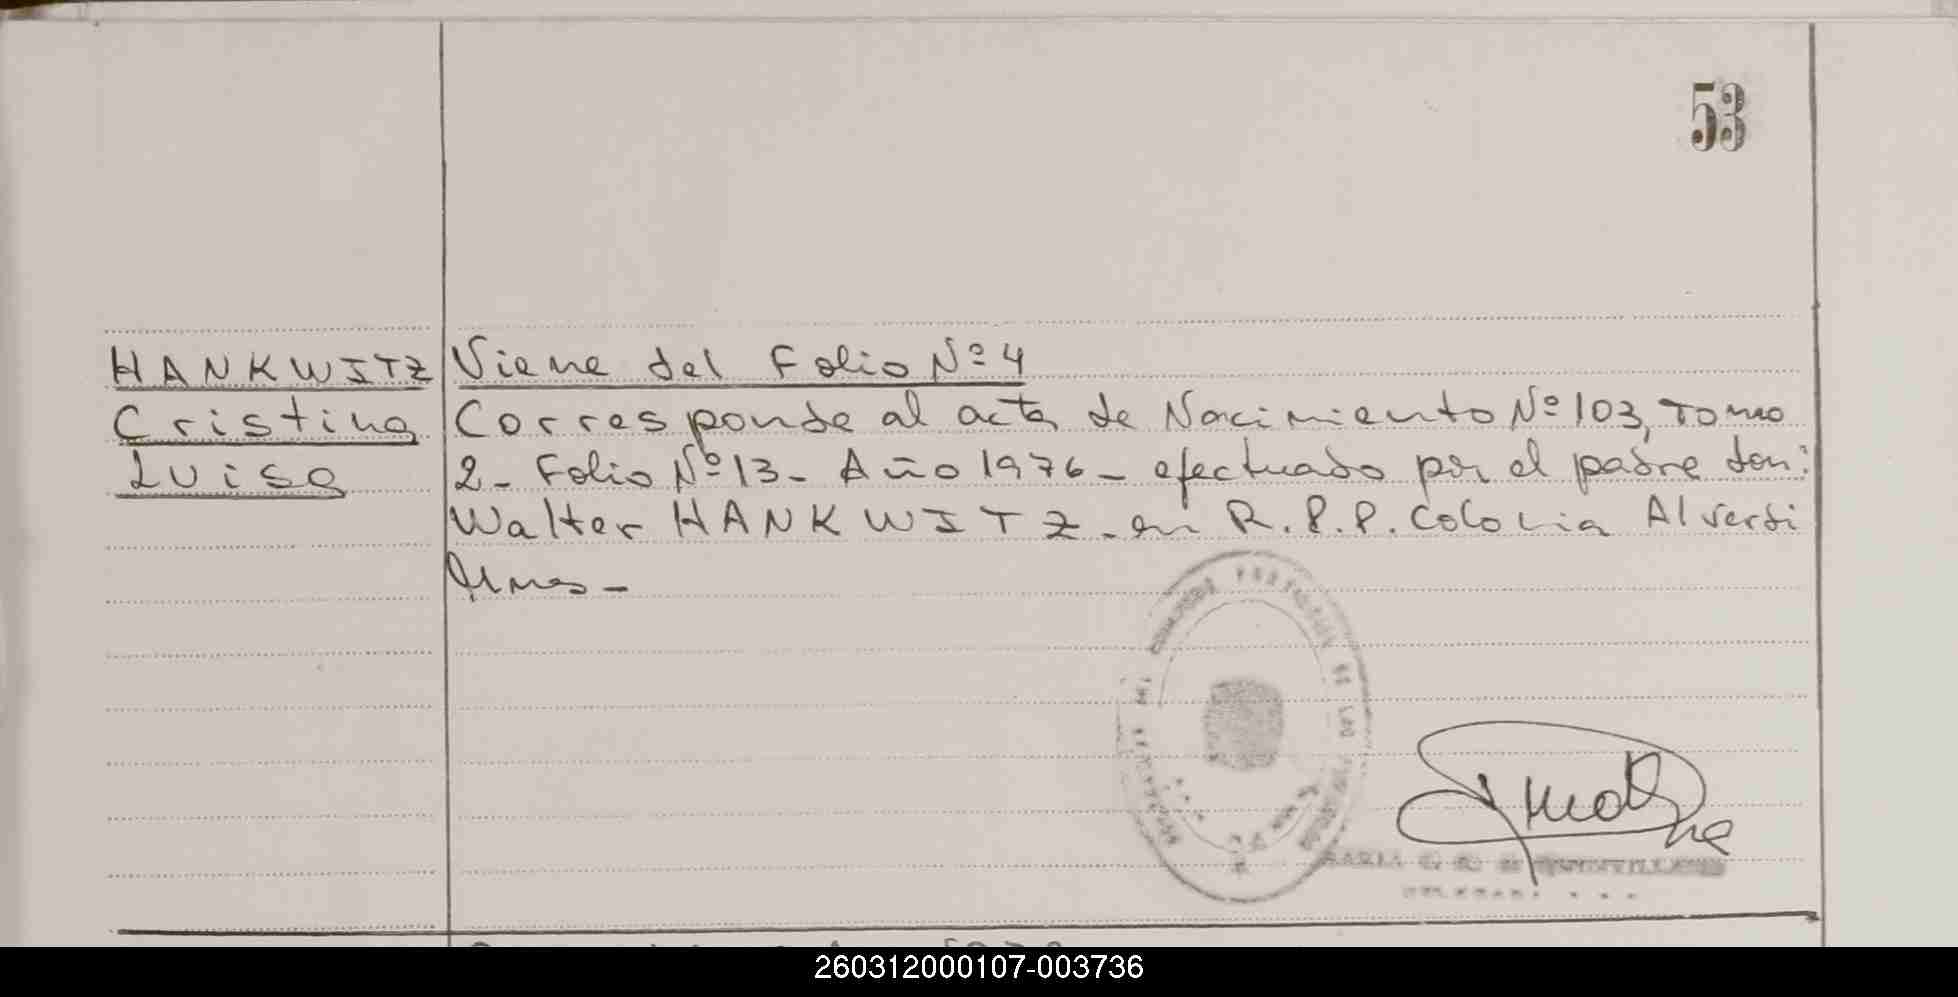 53
HANKWITZ
Cristina
Luisa
Viene del Folio Nº 4
Corresponde al acta de Nacimiento Nº 103, Tomo
2 - Folio Nº 13 - Año 1976 - efectuado por el padre don:
Walter HANKWITZ - en R.P.P. Colonia
260312000107-003736